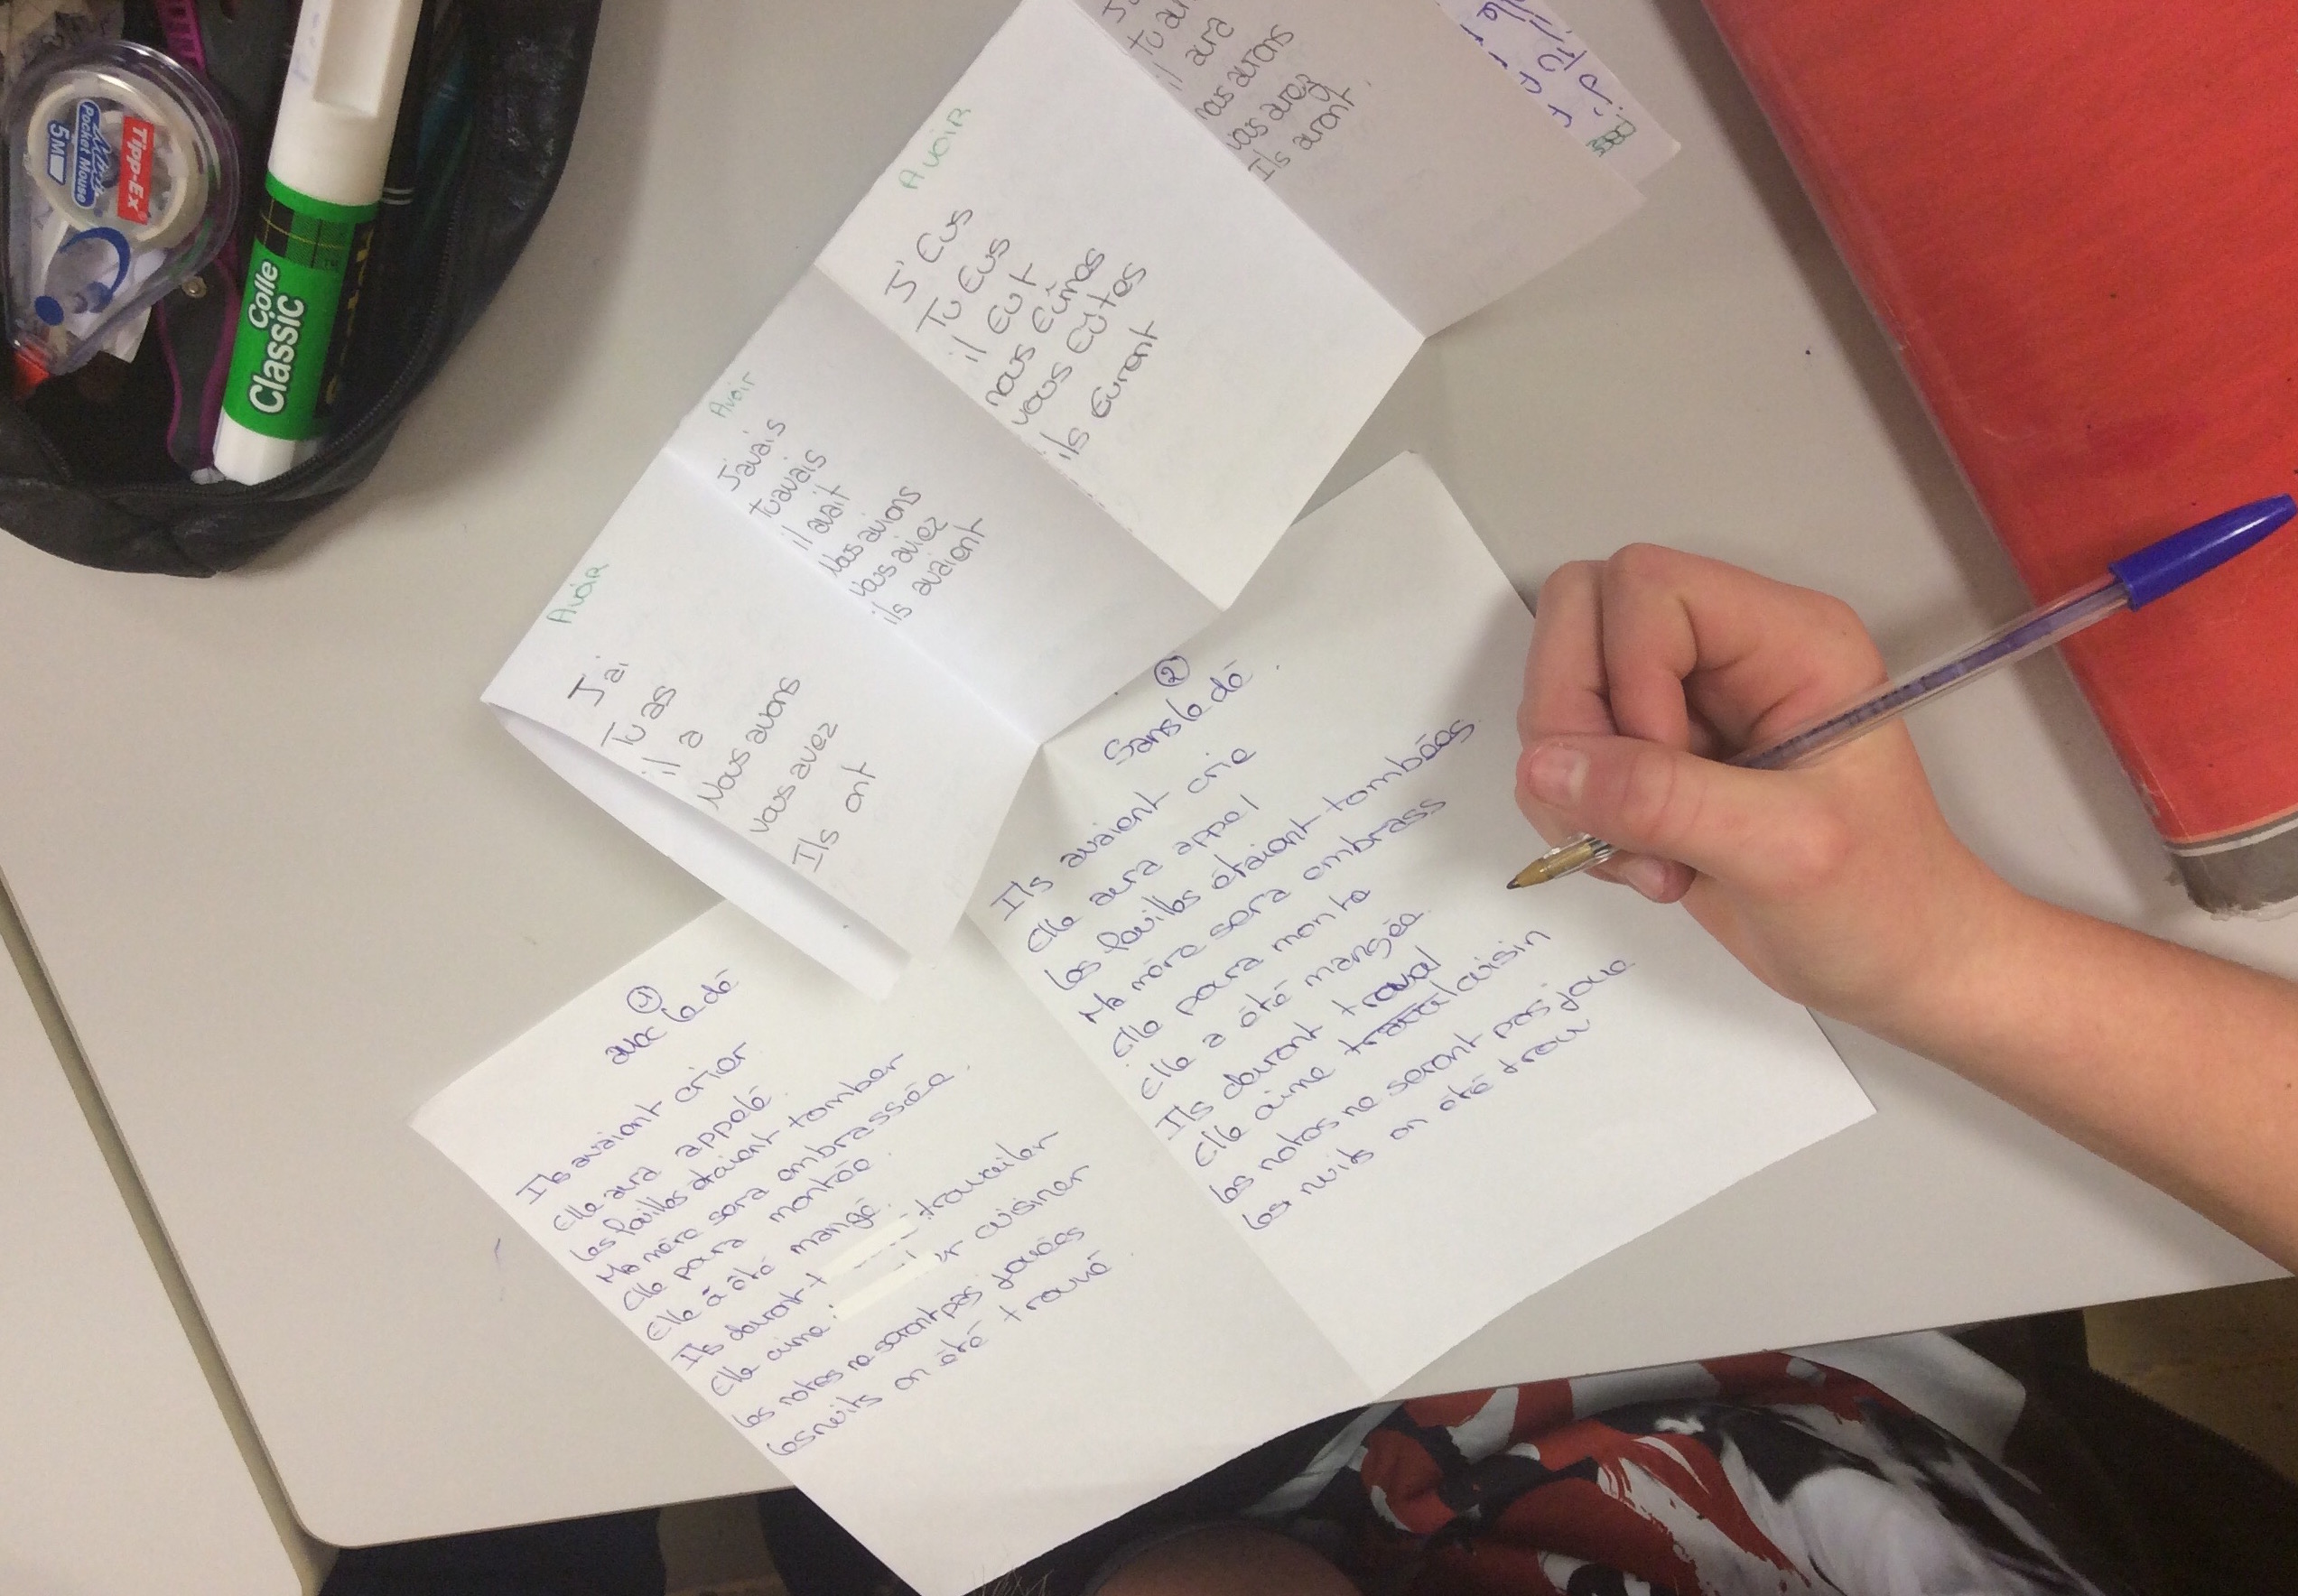 Tipp-Ex
Pocket Mouse
5M
Colle
Classic
AVOIR
J'ai
Tu as
il a
Nous avons
vous avez
Ils ont
Avoir
J'avais
tu avais
il avait
Nous avions
vous aviez
ils avaient
AVOIR
J'Eus
Tu Eus
il Eut
nous Eûmes
vous Eûtes
ils Eurent
il aura
nous aurons
vous aurez
Ils auront
①
avec le dé
Ils avaient crier
Elle aura appelé.
Les feuilles étaient tomber
Ma mère sera embrassée.
Elle poura montée.
Elle à été mangé.
Ils devront t travailler
Elle aime cuisiner
Les notes ne seront pas jouées
Les nuits on été trouvé.
②
Sans le dé.
Ils avaient crie
Elle aura appel
Les feuilles étaient tombées
Ma mère sera embrass
Elle poura monte
Elle a été mangée.
Ils devront traval
Elle aime cuisin
Les notes ne seront pas joue
Les nuits on été trou